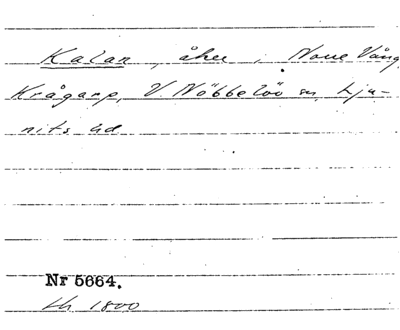 Kalan, åker, Norre Vång
Krågarp, V. Nöbbelöv sn, Lju-
nits hd
Nr 5664.
1800